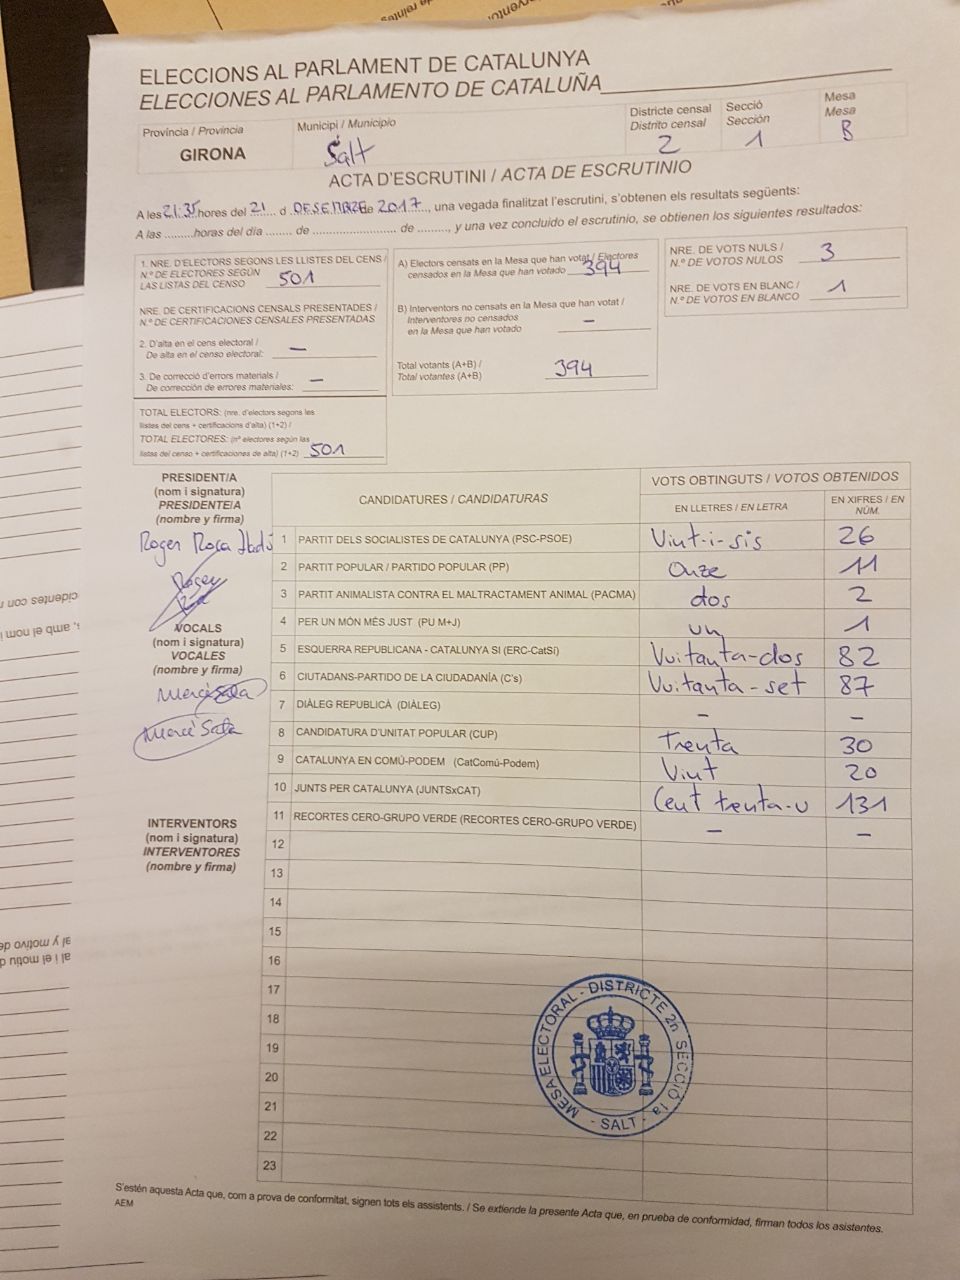 ELECCIONS AL PARLAMENT DE CATALUNYA
ELECCIONES AL PARLAMENTO DE CATALUÑA
Província / Provincia
GIRONA
Municipi / Municipio
Salt
Districte censal
Distrito censal
2
Secció
Sección
1
Mesa
Mesa
B
ACTA D'ESCRUTINI / ACTA DE ESCRUTINIO
A les 21:35 hores del 21 d DESEMBRE de 2017, una vegada finalitzat l'escrutini, s'obtenen els resultats següents:
A las .........horas del día ........ de ........................ de ........, y una vez concluido el escrutinio, se obtienen los siguientes resultados:
1. NRE. D'ELECTORS SEGONS LES LLISTES DEL CENS /
N.º DE ELECTORES SEGÚN
LAS LISTAS DEL CENSO 501
NRE. DE CERTIFICACIONS CENSALS PRESENTADES /
N.º DE CERTIFICACIONES CENSALES PRESENTADAS
2. D'alta en el cens electoral /
De alta en el censo electoral: –
3. De correcció d'errors materials /
De corrección de errores materiales: –
TOTAL ELECTORS: (nre. d'electors segons les
llistes del cens + certificacions d'alta) (1+2) /
TOTAL ELECTORES: (nº electores según las
listas del censo + certificaciones de alta) (1+2) 501
A) Electors censats en la Mesa que han votat / Electores
censados en la Mesa que han votado 394
B) Interventors no censats en la Mesa que han votat /
Interventores no censados
en la Mesa que han votado –
Total votants (A+B) /
Total votantes (A+B) 394
NRE. DE VOTS NULS /
N.º DE VOTOS NULOS 3
NRE. DE VOTS EN BLANC /
N.º DE VOTOS EN BLANCO 1
PRESIDENT/A
(nom i signatura)
PRESIDENTE/A
(nombre y firma)
Roger Roca
Roger
VOCALS
(nom i signatura)
VOCALES
(nombre y firma)
Mercè Sala
Mercè Sala
INTERVENTORS
(nom i signatura)
INTERVENTORES
(nombre y firma)
CANDIDATURES / CANDIDATURAS
VOTS OBTINGUTS / VOTOS OBTENIDOS
EN LLETRES / EN LETRA
EN XIFRES / EN NÚM.
1 PARTIT DELS SOCIALISTES DE CATALUNYA (PSC-PSOE) Vint-i-sis 26
2 PARTIT POPULAR / PARTIDO POPULAR (PP) Onze 11
3 PARTIT ANIMALISTA CONTRA EL MALTRACTAMENT ANIMAL (PACMA) dos 2
4 PER UN MÓN MÉS JUST (PU M+J) un 1
5 ESQUERRA REPUBLICANA - CATALUNYA SI (ERC-CatSí) Vuitanta-dos 82
6 CIUTADANS-PARTIDO DE LA CIUDADANÍA (C's) Vuitanta-set 87
7 DIÀLEG REPUBLICÀ (DIÀLEG) – –
8 CANDIDATURA D'UNITAT POPULAR (CUP) Trenta 30
9 CATALUNYA EN COMÚ-PODEM (CatComú-Podem) Vint 20
10 JUNTS PER CATALUNYA (JUNTSxCAT) Cent trenta-u 131
11 RECORTES CERO-GRUPO VERDE (RECORTES CERO-GRUPO VERDE) – –
12
13
14
15
16
17
18
19
20
21
22
23
MESA ELECTORAL - DISTRICTE 2n SECCIÓ 1a - SALT -
S'estén aquesta Acta que, com a prova de conformitat, signen tots els assistents. / Se extiende la presente Acta que, en prueba de conformidad, firman todos los asistentes.
AEM